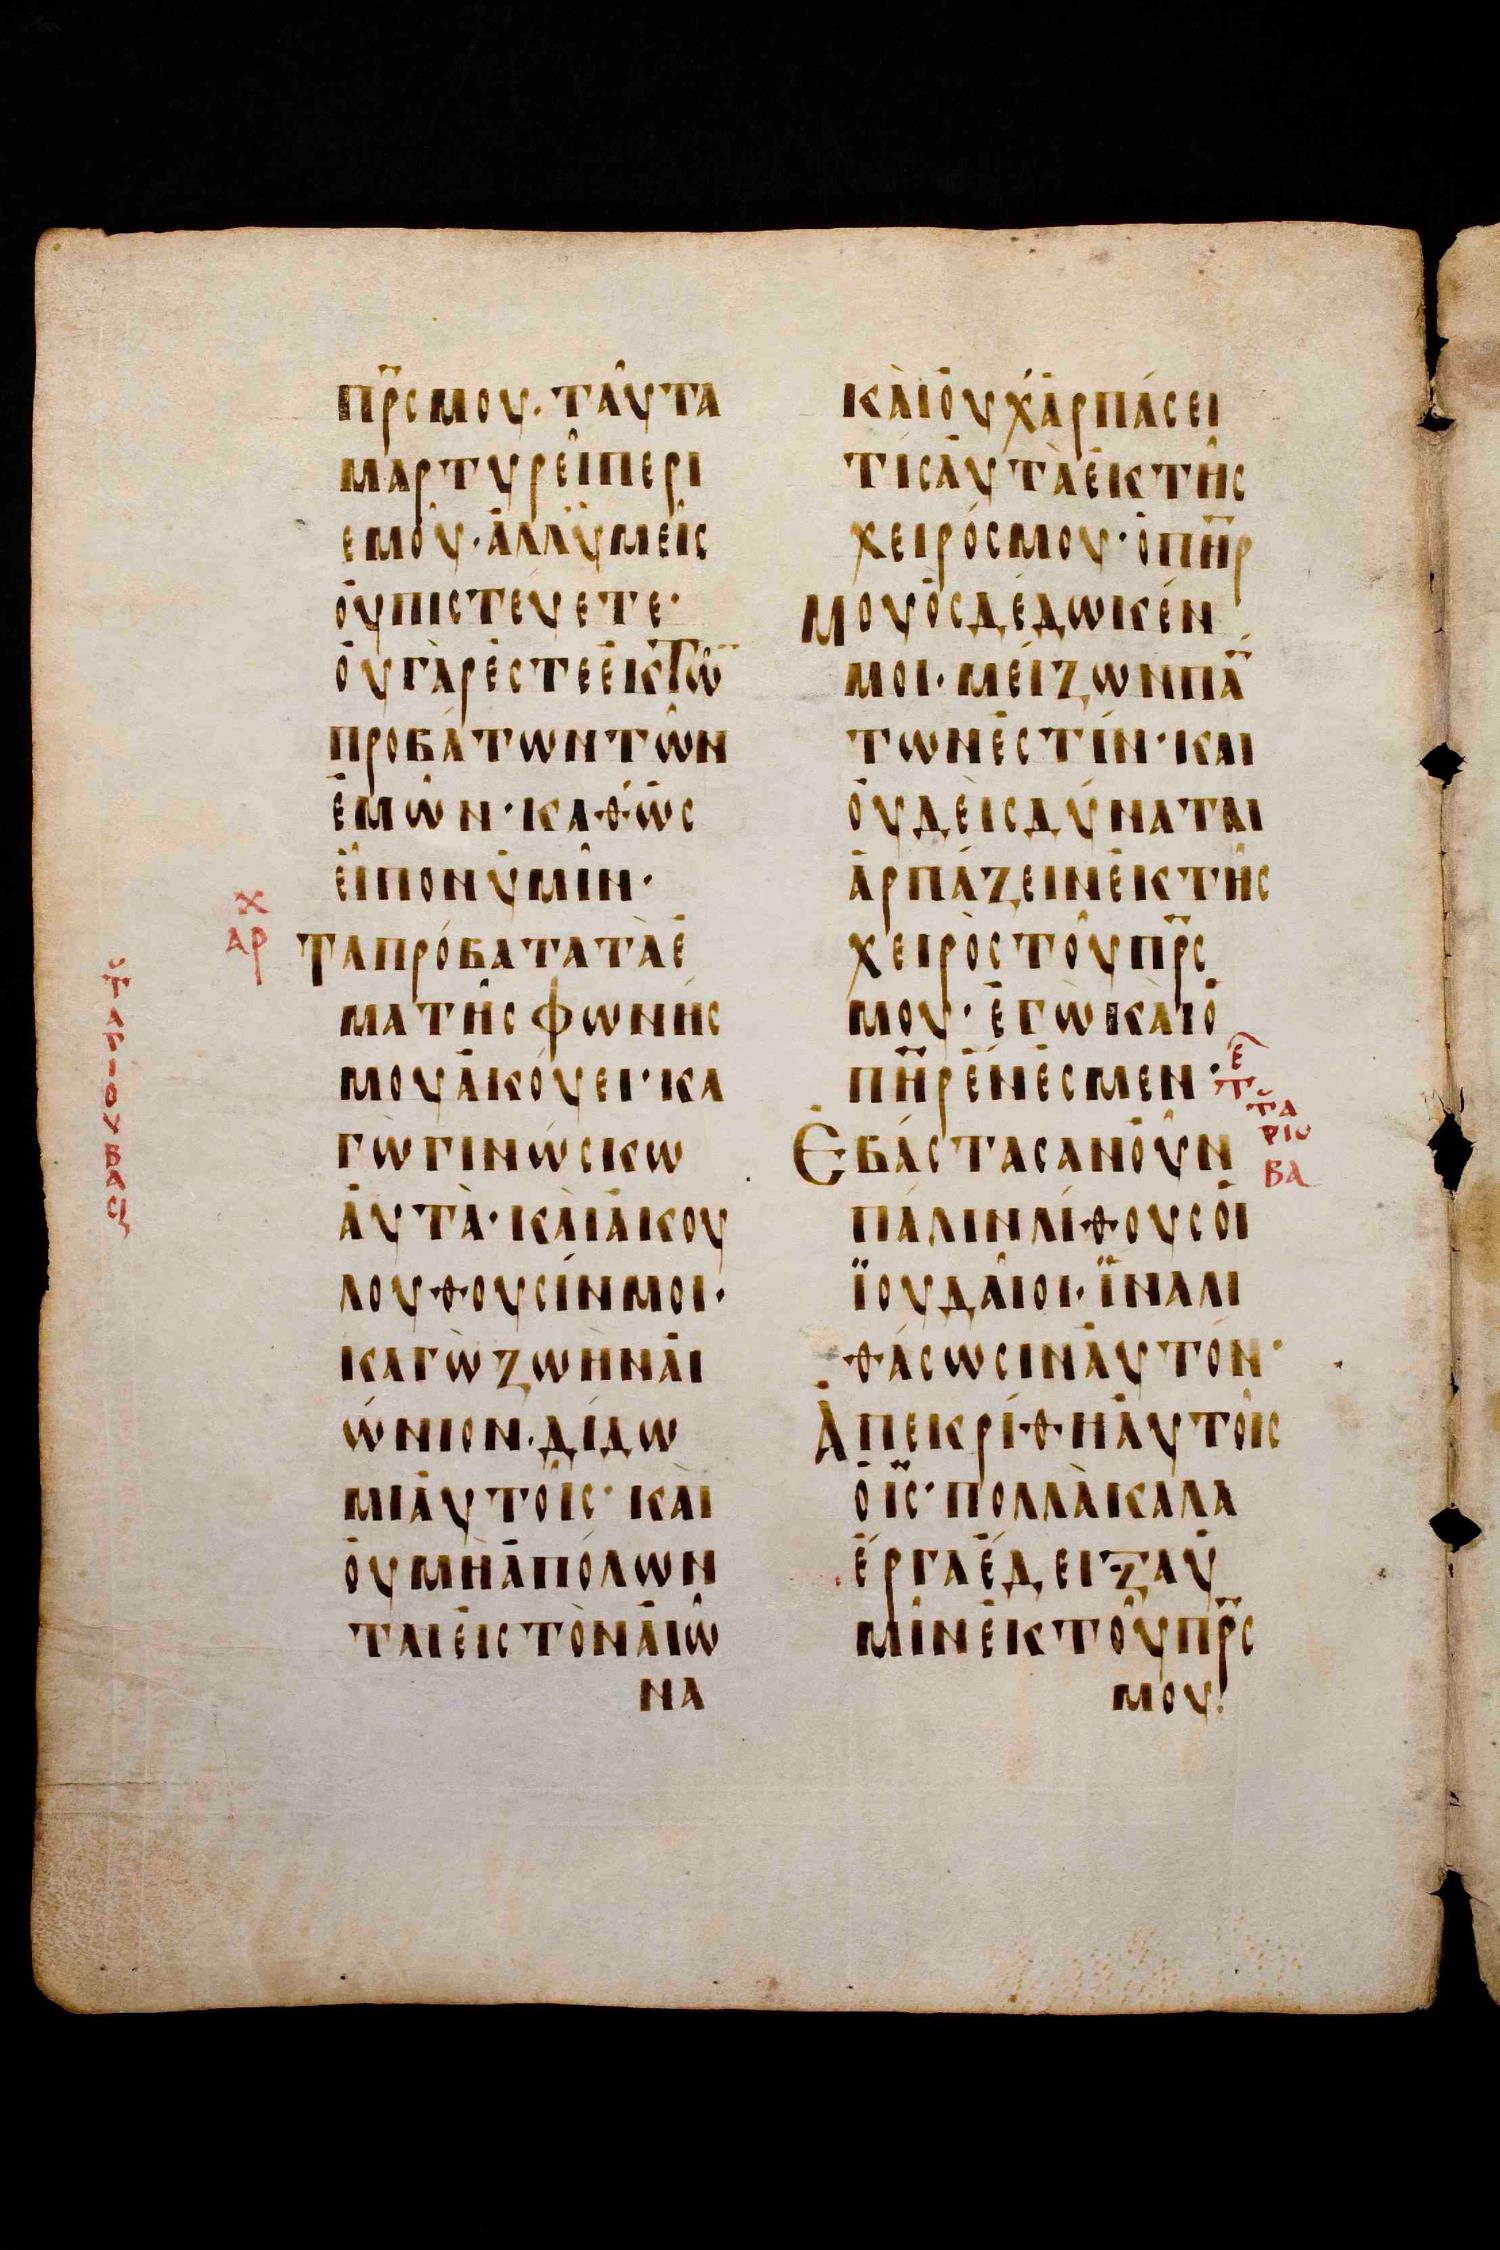 ΠΡ̅Σ ΜΟΥ· ΤΑΥΤΑ
ΜΑΡΤΥΡΕΙ ΠΕΡΙ
ΕΜΟΥ· ΑΛΛ ΥΜΕΙΣ
ΟΥ ΠΙΣΤΕΥΕΤΕ·
ΟΥ ΓΑΡ ΕΣΤΕ ΕΚ ΤΩ̅
ΠΡΟΒΑΤΩΝ ΤΩΝ
ΕΜΩΝ· ΚΑΘΩΣ
ΕΙΠΟΝ ΥΜΙΝ·
Χ
ΑΡ
ΤΑ ΠΡΟΒΑΤΑ ΤΑ Ε
ΜΑ ΤΗΣ ΦΩΝΗΣ
ΜΟΥ ΑΚΟΥΕΙ· ΚΑ
ΓΩ ΓΙΝΩΣΚΩ
ΑΥΤΑ· ΚΑΙ ΑΚΟΥ
ΛΟΥΘΟΥΣΙΝ ΜΟΙ·
ΚΑΓΩ ΖΩΗΝ ΑΙ
ΩΝΙΟΝ· ΔΙΔΩ
ΜΙ ΑΥΤΟΙΣ· ΚΑΙ
ΟΥ ΜΗ ΑΠΟΛΩΝ
ΤΑΙ ΕΙΣ ΤΟΝ ΑΙΩ
ΝΑ
ΚΑΙ ΟΥΧ ΑΡΠΑΣΕΙ
ΤΙΣ ΑΥΤΑ ΕΚ ΤΗΣ
ΧΕΙΡΟΣ ΜΟΥ· Ο ΠΗ̅Ρ
ΜΟΥ ΟΣ ΔΕΔΩΚΕΝ
ΜΟΙ· ΜΕΙΖΩΝ ΠΑ̅
ΤΩΝ ΕΣΤΙΝ· ΚΑΙ
ΟΥΔΕΙΣ ΔΥΝΑΤΑΙ
ΑΡΠΑΖΕΙΝ ΕΚ ΤΗΣ
ΧΕΙΡΟΣ ΤΟΥ ΠΡ̅Σ
ΜΟΥ· ΕΓΩ ΚΑΙ Ο
ΠΗ̅Ρ ΕΝ ΕΣΜΕΝ·
ΕΒΑΣΤΑΣΑΝ ΟΥΝ
ΠΑΛΙΝ ΛΙΘΟΥΣ ΟΙ
ΪΟΥΔΑΙΟΙ· ΪΝΑ ΛΙ
ΘΑΣΩΣΙΝ ΑΥΤΟΝ·
ΑΠΕΚΡΙΘΗ ΑΥΤΟΙΣ
Ο ΙΣ̅· ΠΟΛΛΑ ΚΑΛΑ
ΕΡΓΑ ΕΔΕΙΞΑ Υ
ΜΙΝ ΕΚ ΤΟΥ ΠΡ̅Σ
ΜΟΥ·